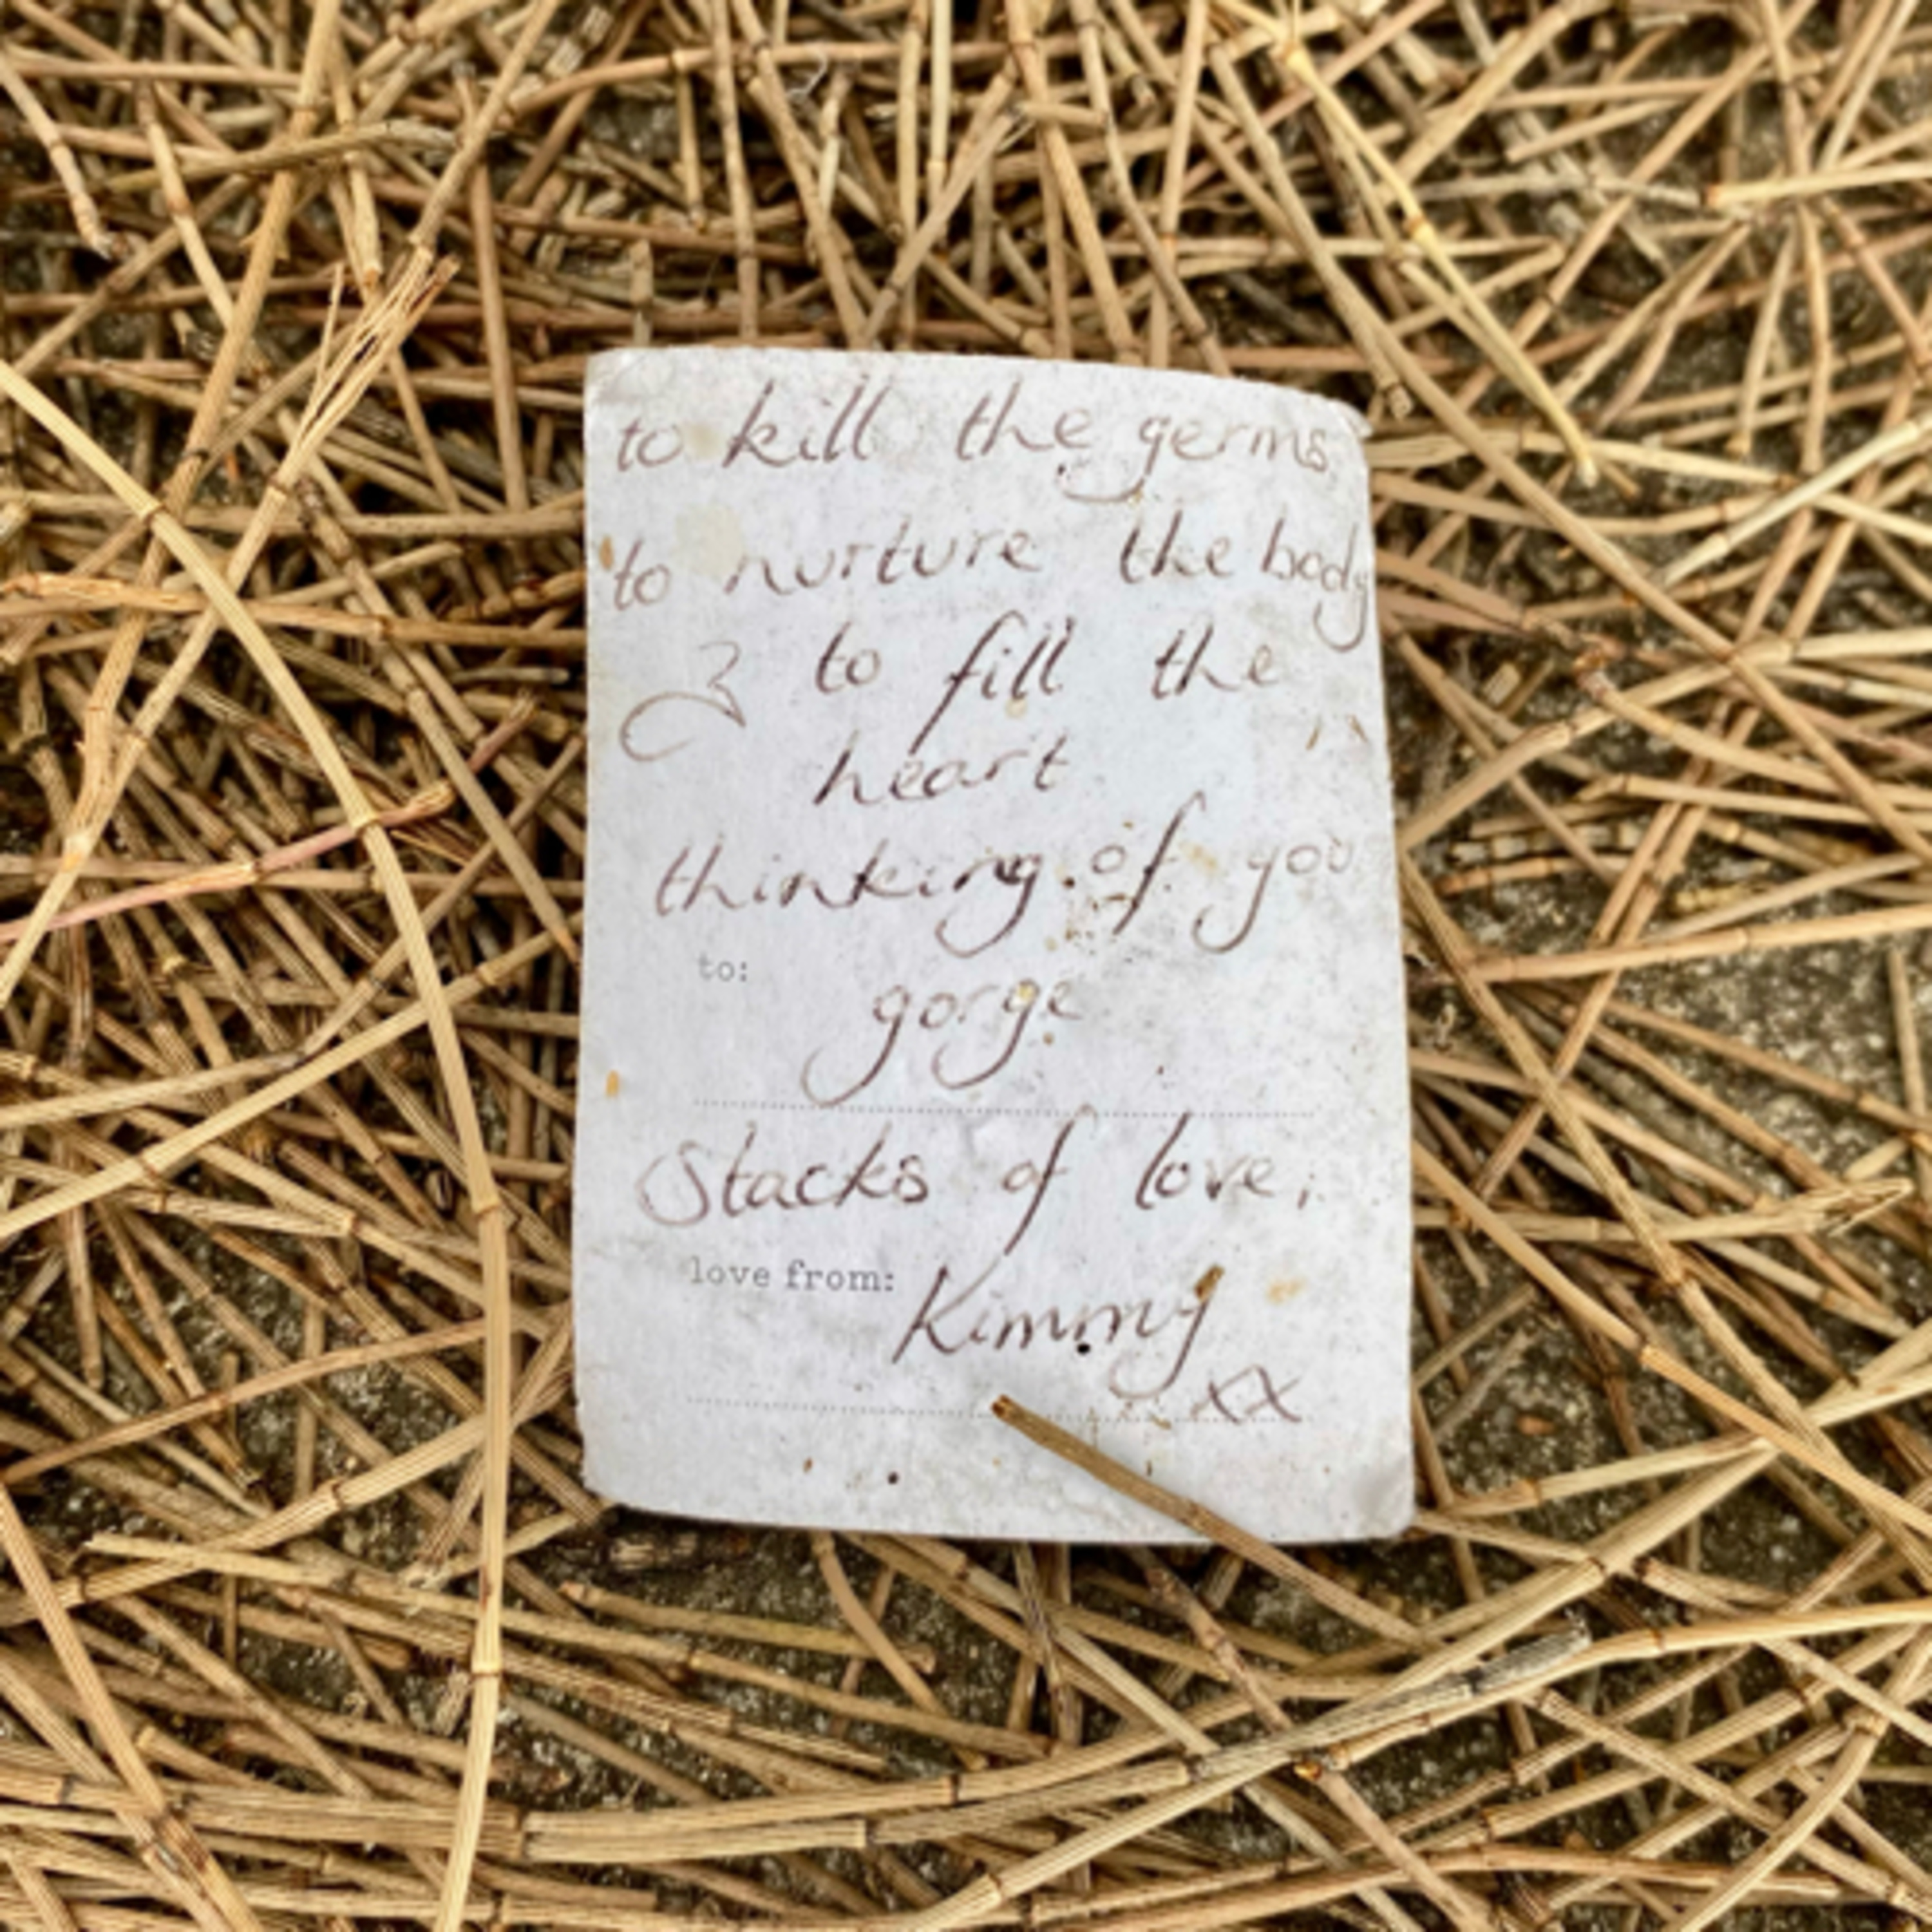 to kill the germs,
to nurture the body
& to fill the
heart
thinking of you
to:
gorge
Stacks of love,
love from: Kimmy
xx